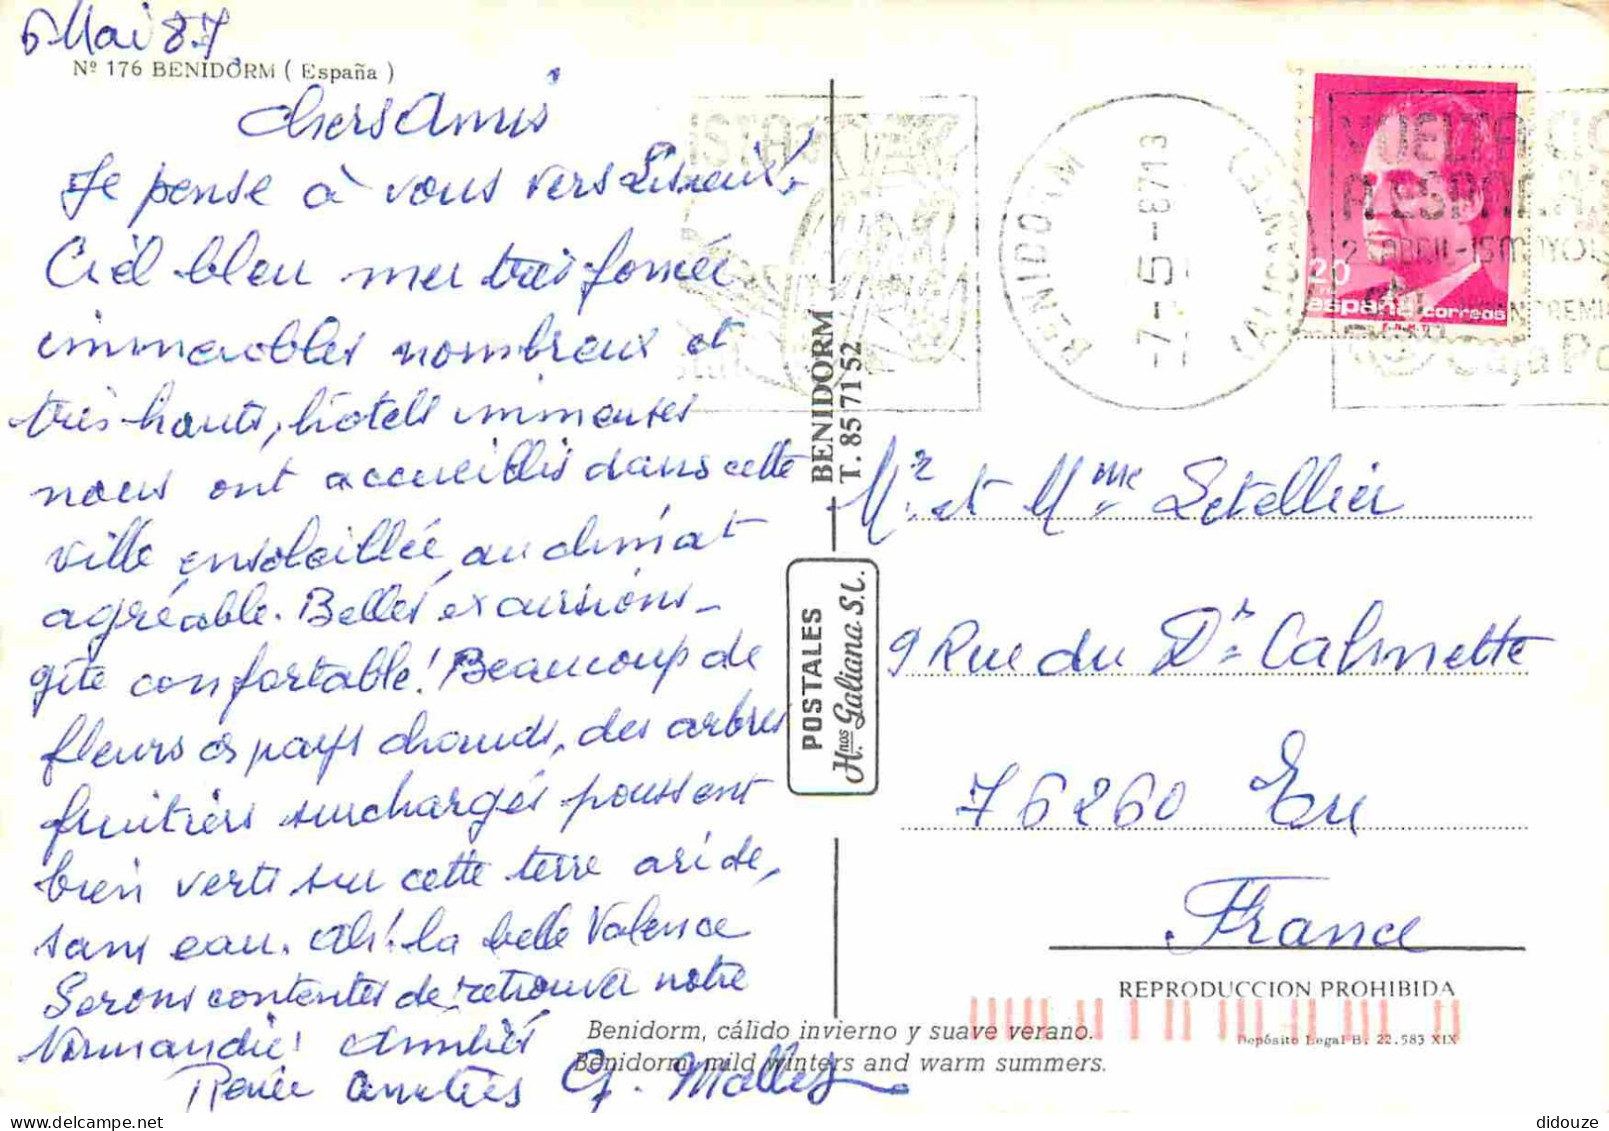 6 Mai 87
Nº 176 BENIDORM ( España )
Chers Amis
Je pense à vous vers Lisieux.
Ciel bleu mer très foncée
immeubles nombreux et
très hauts, hôtels immenses
nous ont accueillis dans cette
ville ensoleillée, au climat
agréable. Belles excursions -
gîte confortable! Beaucoup de
fleurs ds pays chauds, des arbres
fruitiers surchargés poussent
bien verts sur cette terre aride,
sans eau. Ah! la belle Valence
Serons contentes de retrouver notre
Normandie! Amitiés
Renée Amitiés G. Mallet
BENIDORM
T. 85 71 52
POSTALES
Hnos. Galiana S.L.
BENIDORM
(ALICANTE)
-7-5-8713
VUELTA CIC
A ESPAÑA
ABRIL-15 MAYO
Caja Po
20
españa correos
F.N.M.T.
Mr. et Mme Letellier
9 Rue du Dr Calmette
76260 Eu
France
REPRODUCCION PROHIBIDA
Depósito Legal B. 22.583 XIX
Benidorm, cálido invierno y suave verano.
Benidorm, mild winters and warm summers.
didouze